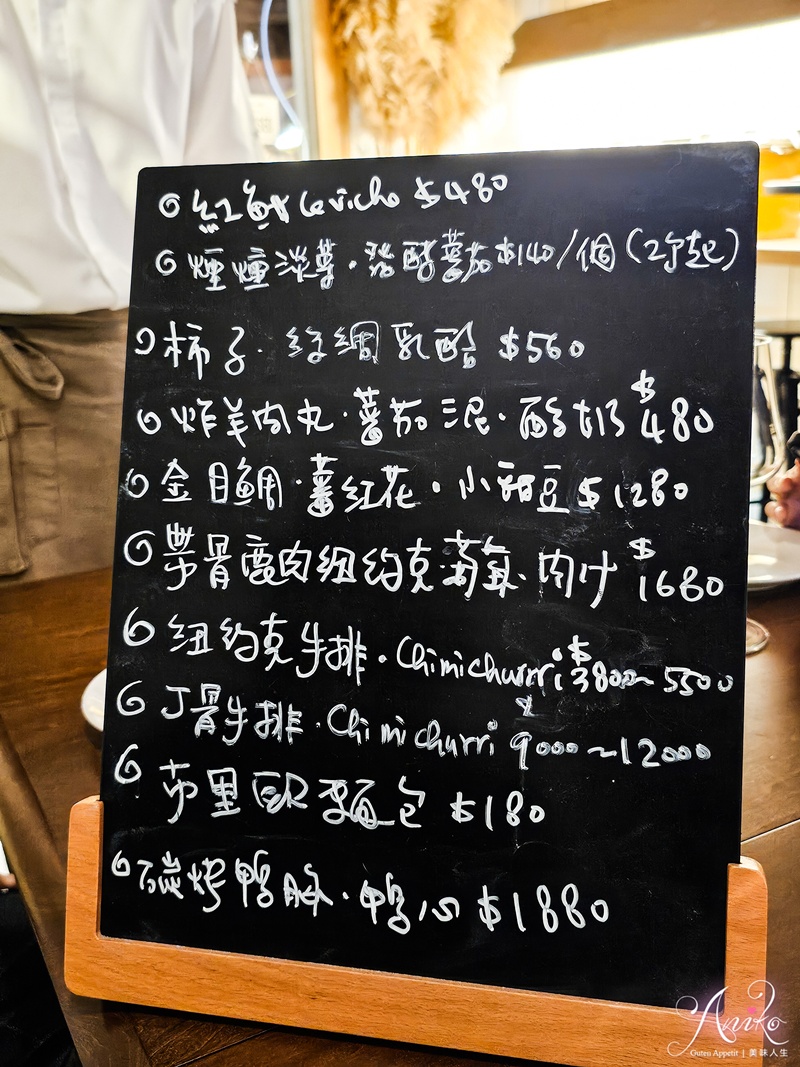 紅魽 Ceviche $480
煙燻淡菜．發酵蕃茄 $140/個(2個起)
柿子．絲綢乳酪 $560
炸羊肉丸．蕃茄泥．酸奶 $480
金目鯛．蕃紅花．小甜豆 $1280
帶骨鹿肉紐約克．莓．肉汁 $1680
紐約克牛排．Chimichurri $3800~5500
丁骨牛排．Chimichurri $9000~12000
布里歐麵包 $180
碳烤鴨胸．鴨心 $1880
Aniko
Guten Appetit | 美味人生